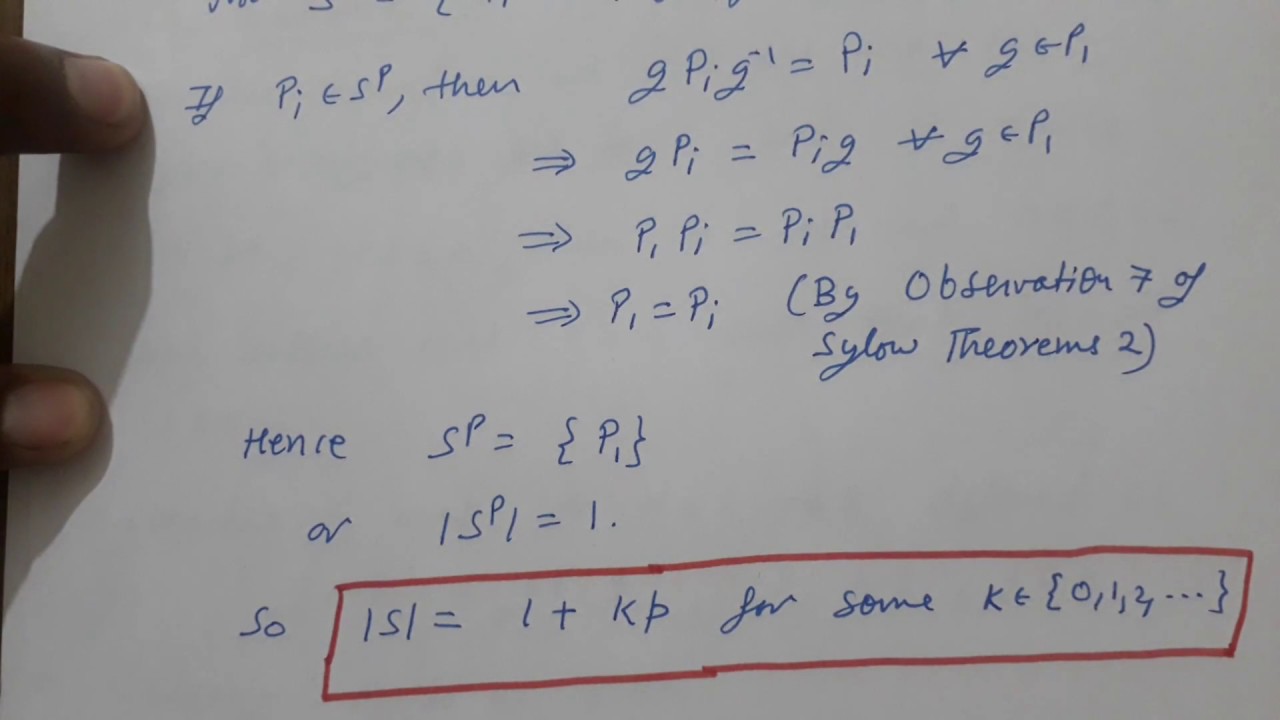 If Pᵢ ∈ Sᴾ, then g Pᵢ g⁻¹ = Pᵢ ∀ g ∈ P₁
⇒ g Pᵢ = Pᵢ g ∀ g ∈ P₁
⇒ P₁ Pᵢ = Pᵢ P₁
⇒ P₁ = Pᵢ (By Observation 7 of
Sylow Theorems 2)
Hence Sᴾ = {P₁}
or |Sᴾ| = 1.
So |S| = 1 + kp for some k ∈ {0,1,2, ...}